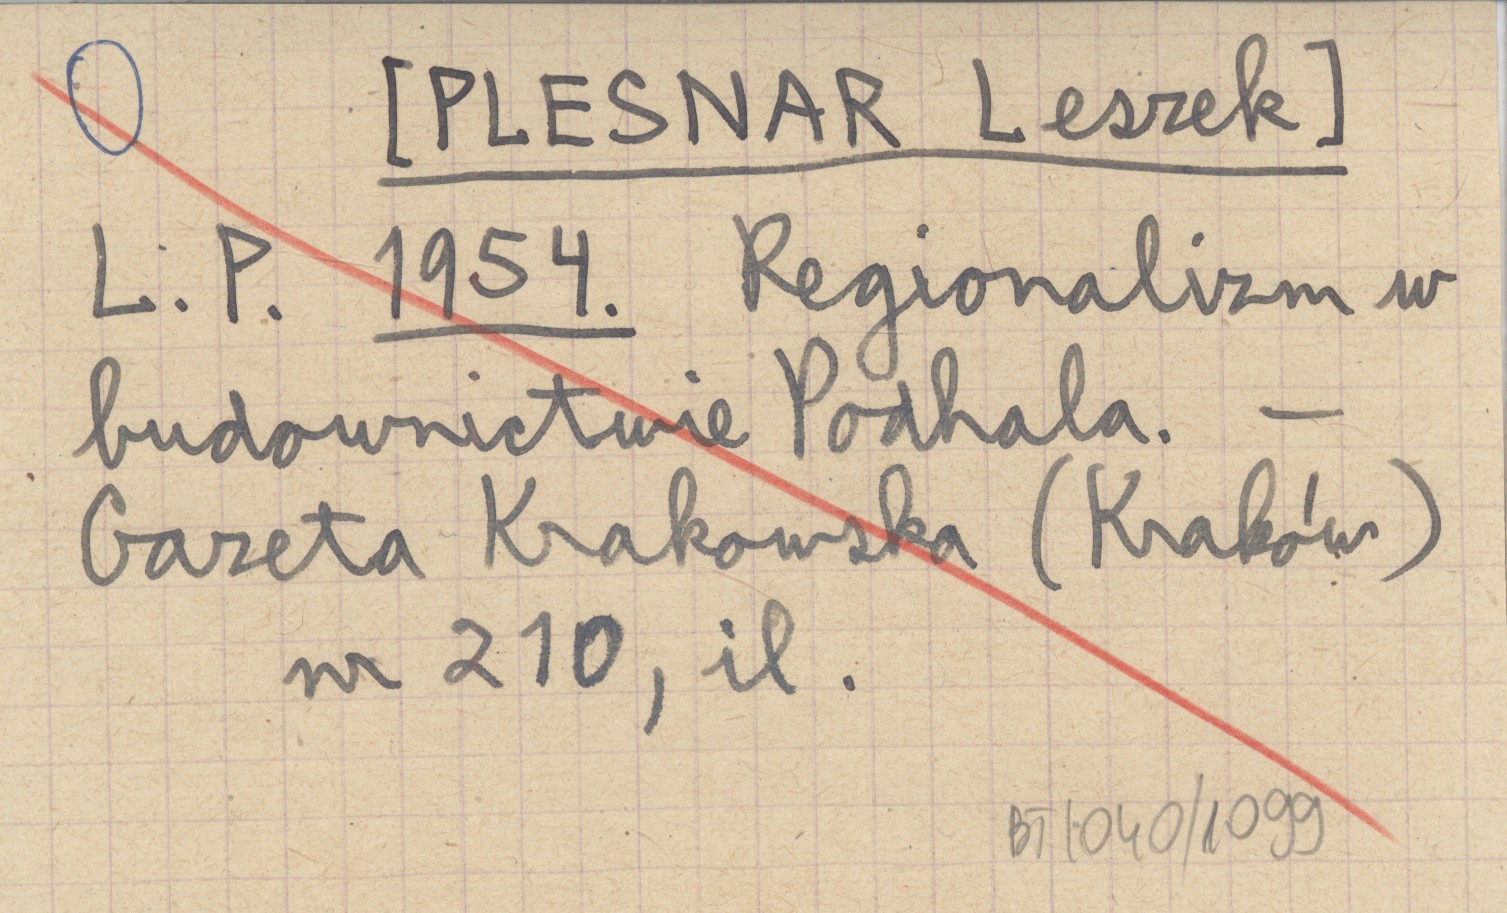 [PLESNAR Leszek]
L. P. 1954. Regionalizm w
budownictwie Podhala. —
Gazeta Krakowska (Kraków)
nr 210, il.
BT 1.040/1.099